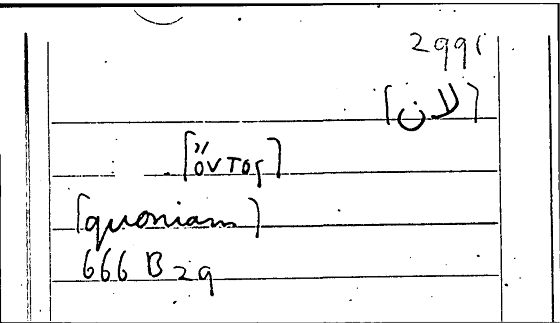 2991
[لان]
[ὄντος]
[quoniam]
666 B 29